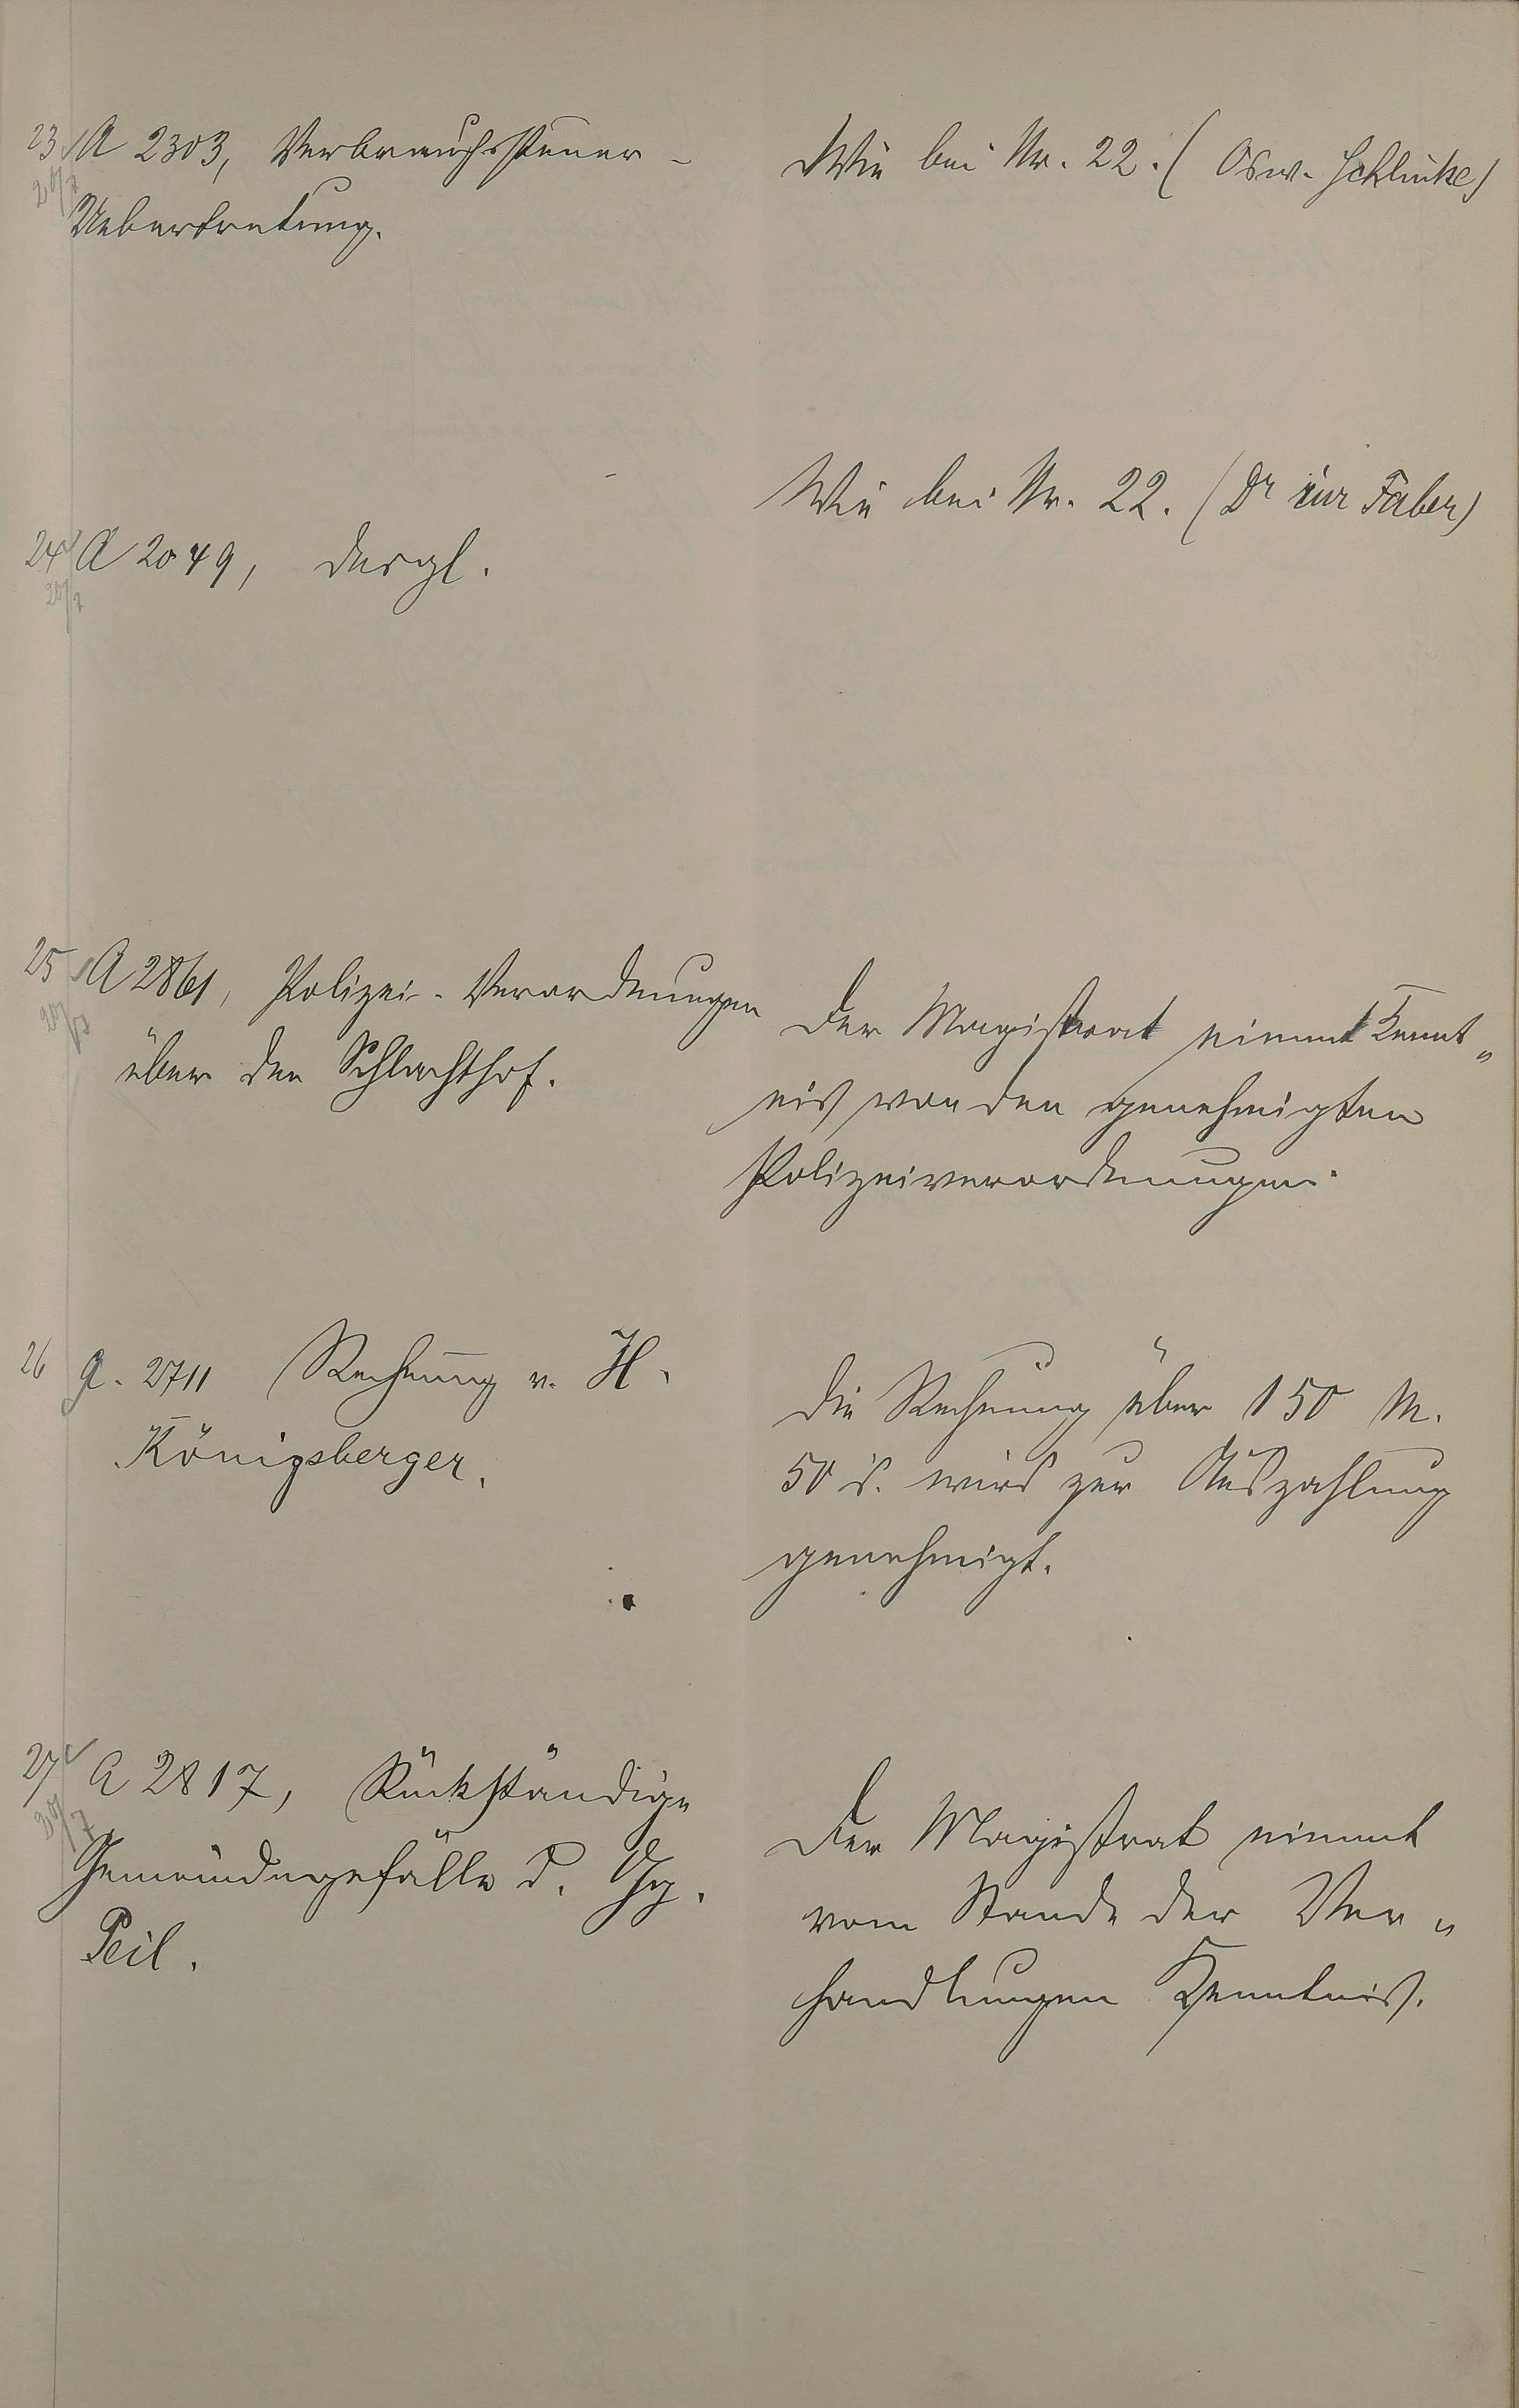 23. A 2303, Verbrauchssteuer-
20/7
Uebertretung.
Wie bei Nr. 22. (Osw. Schlinke)
24 A 2049, desgl.
20/7
Wie bei Nr. 22. (Dr jur Faber)
25 A 2861, Polizei-Verordnungen
20/7
über den Schlachthof.
Der Magistrat nimmt Kennt„
nis von den genehmigten
Polizeiverordnungen.
26 A. 2711 Rechnung v. H.
Königsberger.
Die Rechnung über 150 M.
50 ₰. wird zur Auszahlung
genehmigt.
27 A 2817, Rückständige
20/7
Gemeindegefälle d. Gg.
Peil.
Der Magistrat nimmt
vom Stande der Ver„
handlungen Kenntnis.